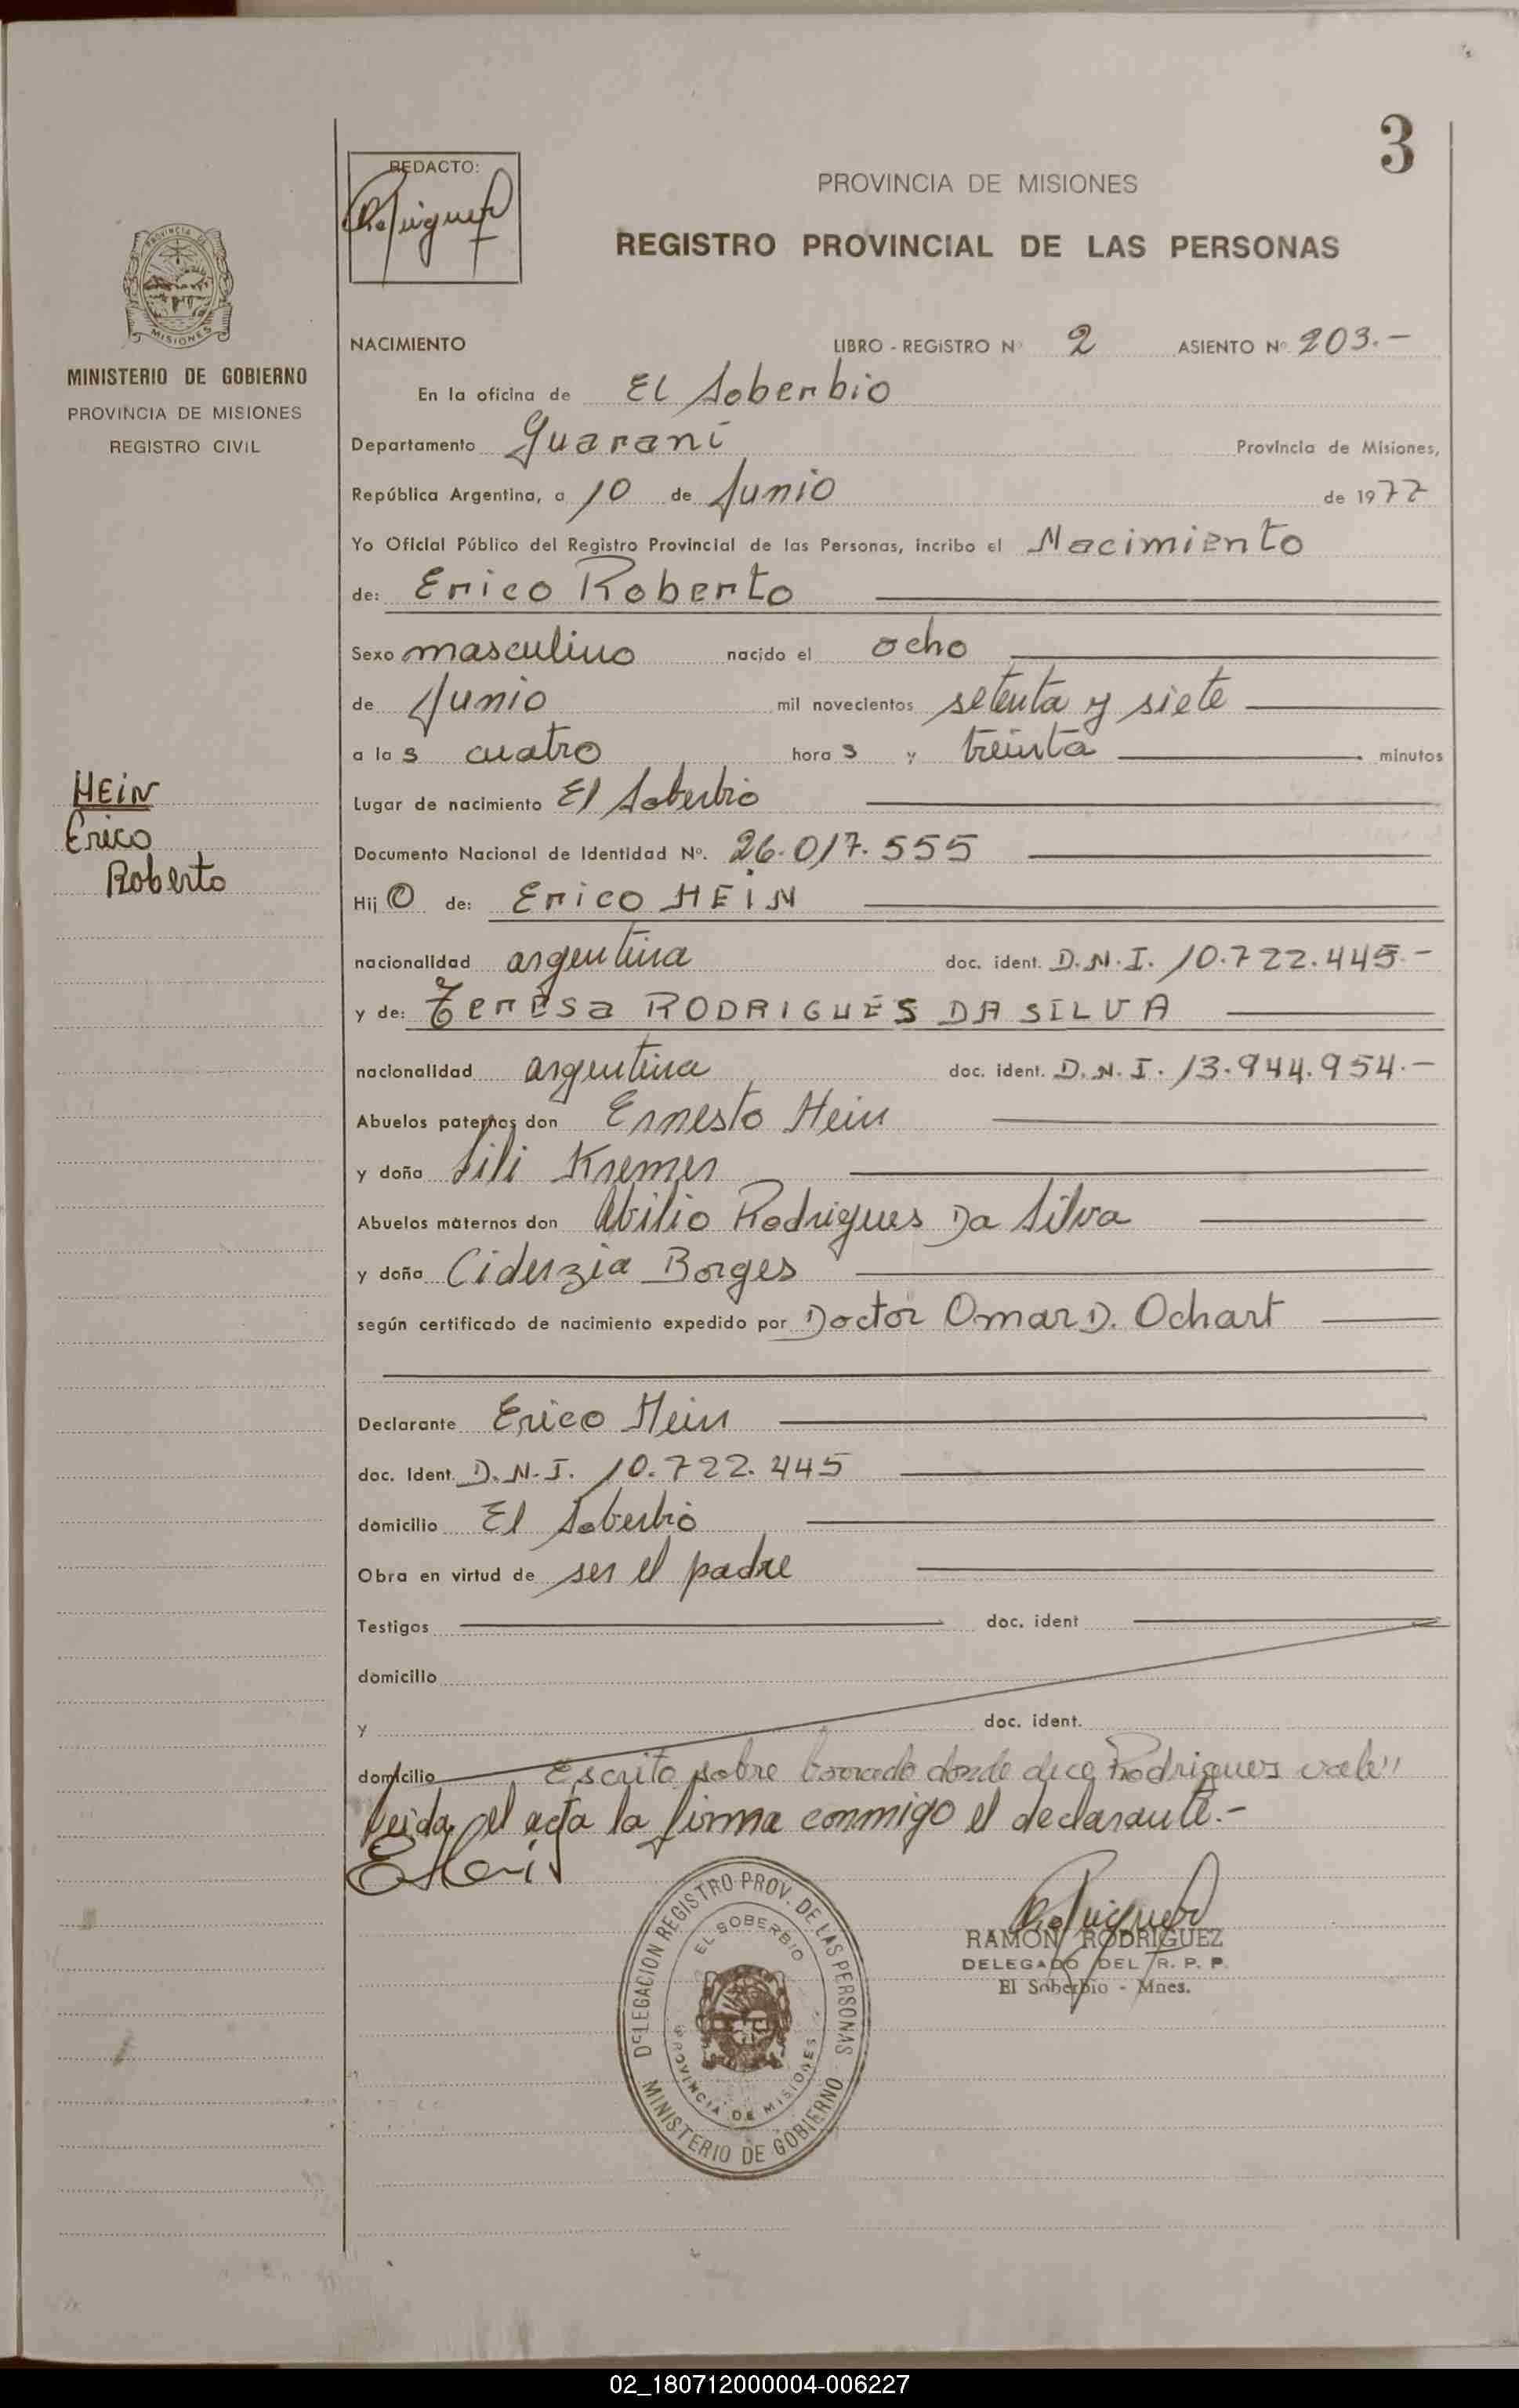 3
REDACTO:
PROVINCIA DE MISIONES
REGISTRO PROVINCIAL DE LAS PERSONAS
PROVINCIA DE
MISIONES
MINISTERIO DE GOBIERNO
PROVINCIA DE MISIONES
REGISTRO CIVIL
NACIMIENTO LIBRO - REGISTRO Nº 2 ASIENTO Nº 203.-
En la oficina de El Soberbio
Departamento Guaraní Provincia de Misiones,
República Argentina, a 10 de Junio de 1977
Yo Oficial Público del Registro Provincial de las Personas, incribo el Nacimiento
de: Erico Roberto
Sexo masculino nacido el ocho
de Junio mil novecientos setenta y siete
a las cuatro horas y treinta minutos
HEIN
Erico
Roberto
Lugar de nacimiento El Soberbio
Documento Nacional de Identidad Nº. 26.017.555
Hijo de: Erico HEIN
nacionalidad argentina doc. ident. D.N.I. 10.722.445.-
y de: Teresa RODRIGUES DA SILVA
nacionalidad argentina doc. ident. D.N.I. 13.944.954.-
Abuelos paternos don Ernesto Hein
y doña Lili Kremer
Abuelos maternos don Abilio Rodrigues Da Silva
y doña Ciderzia Borges
según certificado de nacimiento expedido por Doctor Omar D. Ochart
Declarante Erico Hein
doc. Ident. D.N.I. 10.722.445
domicilio El Soberbio
Obra en virtud de ser el padre
Testigos doc. ident
domicilio
y doc. ident.
domicilio Escrito sobre borrado donde dice Rodrigues vale"
Leida el acta la firma conmigo el declarante.-
DELEGACION REGISTRO PROV. DE LAS PERSONAS
EL SOBERBIO
PROVINCIA DE MISIONES
MINISTERIO DE GOBIERNO
RAMON RODRIGUEZ
DELEGADO DEL R. P. P.
El Soberbio - Mnes.
02_180712000004-006227